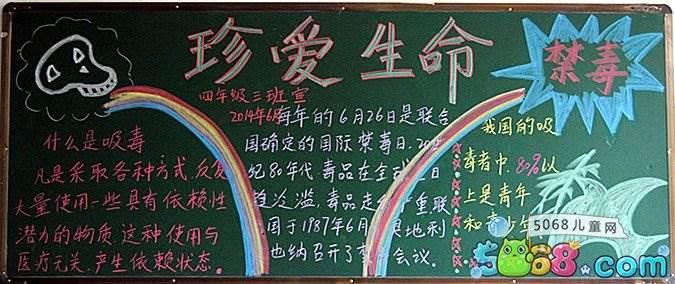 珍爱生命
禁毒
四年级三班宣
2014年6月
什么是吸毒
凡是采取各种方式,反复
大量使用一些具有依赖性
潜力的物质,这种使用与
医疗无关,产生依赖状态。
每年的6月26日是联合
国确定的国际禁毒日.20世
纪80年代 毒品在全
泛滥,毒品走 重联
国于1987年6月 奥地利
也纳召开了 会议。
我国的吸
毒者中,80%以
上是青年
和青少年
5068儿童网
5068.com